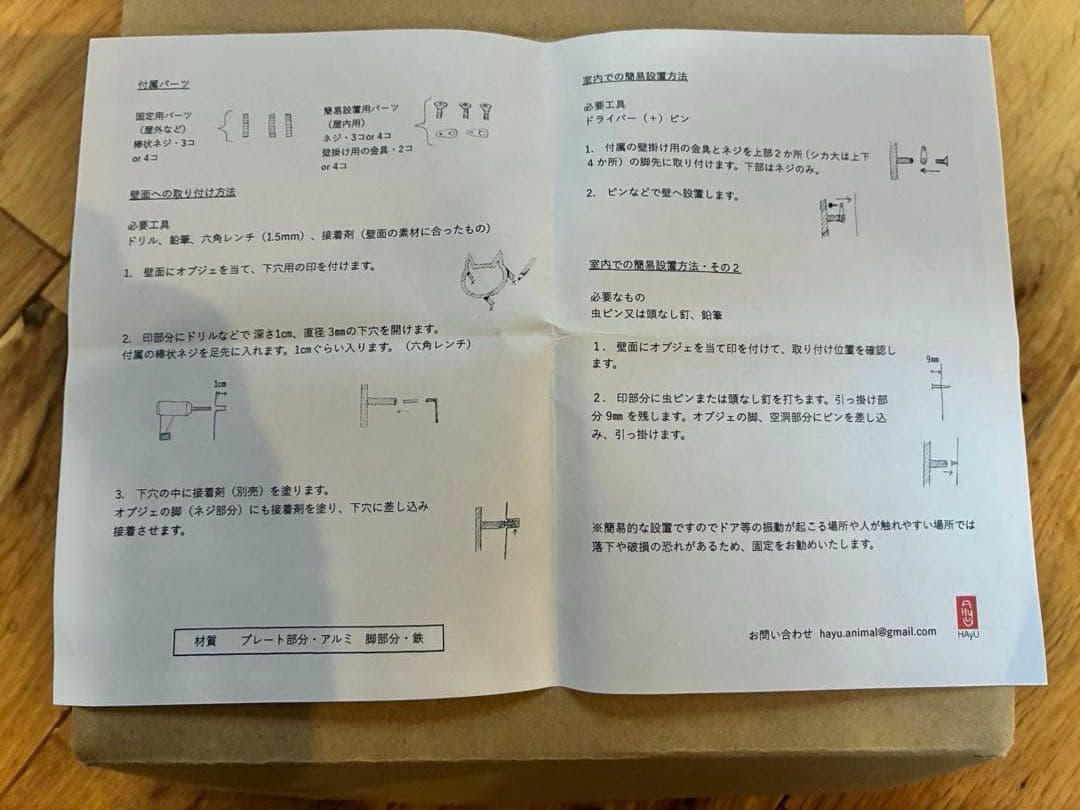 付属パーツ
固定用パーツ
（屋外など）
棒状ネジ・3コ
or 4コ
簡易設置用パーツ
（屋内用）
ネジ・3コor 4コ
壁掛け用の金具・2コ
or 4コ
壁面への取り付け方法
必要工具
ドリル、鉛筆、六角レンチ（1.5mm）、接着剤（壁面の素材に合ったもの）
1. 壁面にオブジェを当て、下穴用の印を付けます。
2. 印部分にドリルなどで 深さ1cm、直径 3㎜の下穴を開けます。
付属の棒状ネジを足先に入れます。1cmぐらい入ります。（六角レンチ）
1cm
3. 下穴の中に接着剤（別売）を塗ります。
オブジェの脚（ネジ部分）にも接着剤を塗り、下穴に差し込み
接着させます。
材質　プレート部分・アルミ　脚部分・鉄
室内での簡易設置方法
必要工具
ドライバー（＋）ピン
1. 付属の壁掛け用の金具とネジを上部２か所（シカ大は上下
４か所）の脚先に取り付けます。下部はネジのみ。
2. ピンなどで壁へ設置します。
室内での簡易設置方法・その２
必要なもの
虫ピン又は頭なし釘、鉛筆
１. 壁面にオブジェを当て印を付けて、取り付け位置を確認し
ます。
9㎜
２. 印部分に虫ピンまたは頭なし釘を打ちます。引っ掛け部
分 9㎜ を残します。オブジェの脚、空洞部分にピンを差し込
み、引っ掛けます。
※簡易的な設置ですのでドア等の振動が起こる場所や人が触れやすい場所では
落下や破損の恐れがあるため、固定をお勧めいたします。
お問い合わせ hayu.animal@gmail.com
HAyU
HAyU